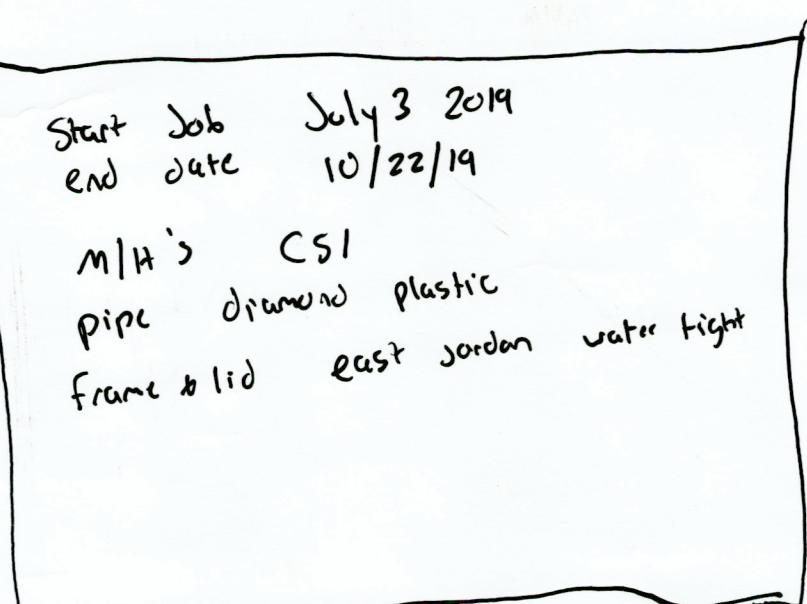 Start Job July 3 2019
end date 10/22/19
M/H's CSI
pipe diamond plastic
frame & lid east jordan water tight